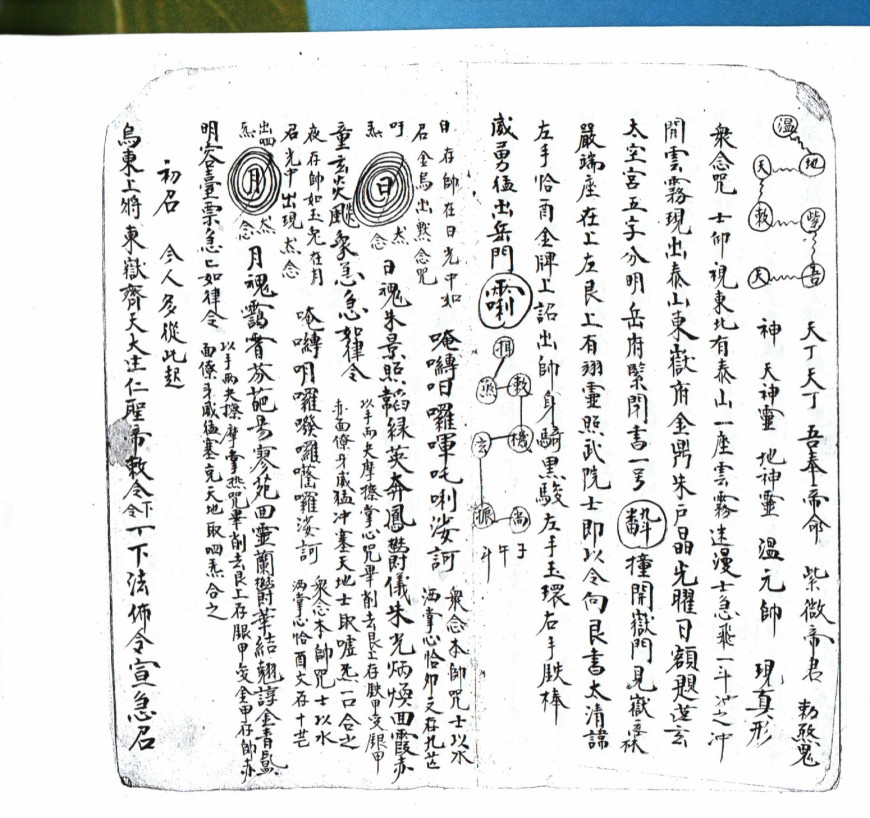 溫
地
天
紫
敕
吾
天
天丁天丁 吾奉帝命 紫微帝君 勑煞鬼
神 天神靈 地神靈 溫元帥 現真形
衆念咒 士仰視東北有泰山一座雲霧迷漫士急飛一斗冲之冲
開雲霧現出泰山東嶽府金鼎朱戶晶光曜日額題蓬玄
太空宮五字分明岳府緊閉書一号 撞開嶽門見嶽
嚴端座在上左艮上有翊靈照武院士即以令向艮書太清諱
左手恰酉金牌上詔出帥身騎黑駿左手玉環右手鉄棒
威勇猛出岳門
敕
機
玄
振
尚
斗午子
唵嚩日囉吽吒唎娑訶 衆念本帥咒士以水
洒掌心恰卯文存九芒
日存帥在日光中如
君金烏出默念咒
日
日魂朱景照韜綠英奔鳳鬱儀朱光炳煥回霞赤
童玄炎飈衆急急如律令 以手兩夾摩擦掌心咒畢削去艮上存鉄甲変銀甲
赤面僚牙威猛冲塞天地士取嘘炁一口合之
夜存帥如玉兔在月
君光中出現 念
唵嚩月囉 囉 囉娑訶 衆念本帥咒士以水
洒掌心恰酉文存十芒
月
月魂 芬葩 寥苑回靈蘭鬱華結翹淳金青
明容臺票急急如律令 以手兩夾擦摩掌 咒畢削去艮上存銀甲変金甲存帥赤
面僚牙威猛塞充天地取呬炁合之
初召 令人多從此起
烏東上將東嶽齊天大生仁聖帝敕令下 下法佈令宣急召